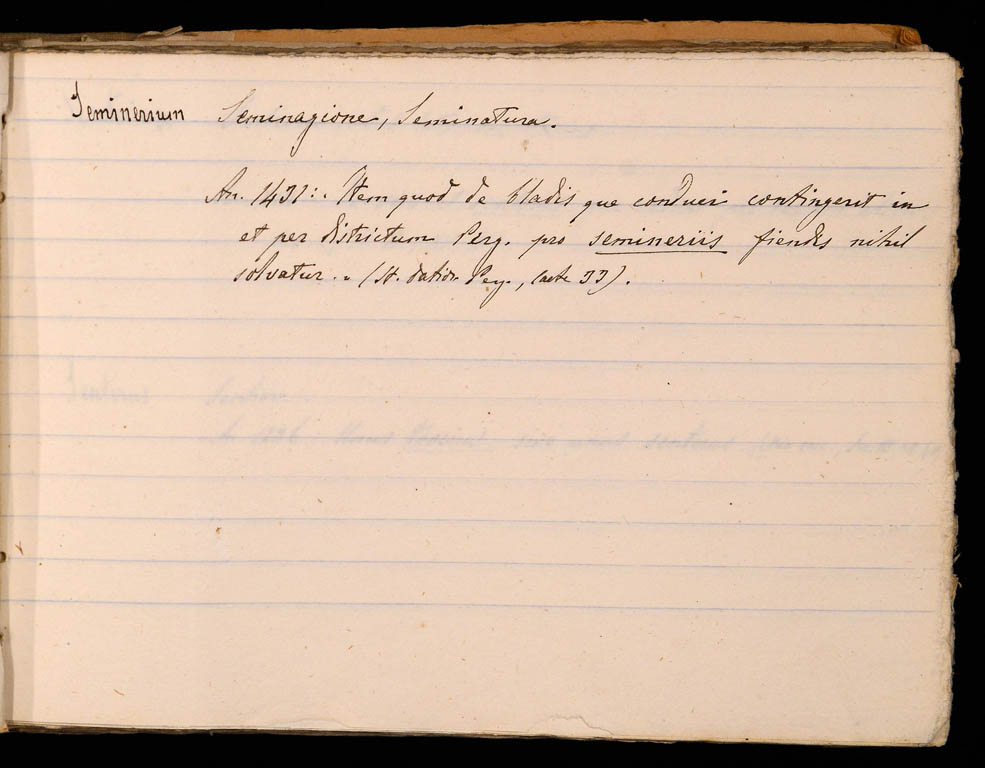 Seminerium Seminagione, Seminatura.
An. 1431: Item quod de bladis que conduci contingerit in
et per districtum Perg. pro semineriis fiendis nihil
solvatur. " (St. datior. Perg., carte 33).